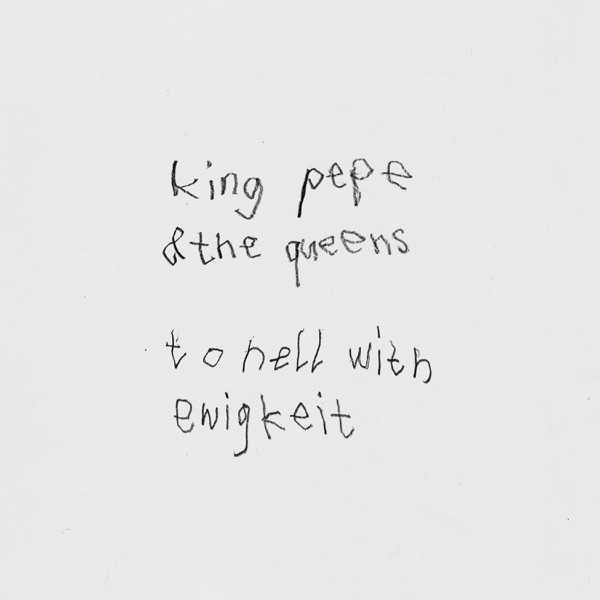 king pepe
&the queens
to hell with
ewigkeit